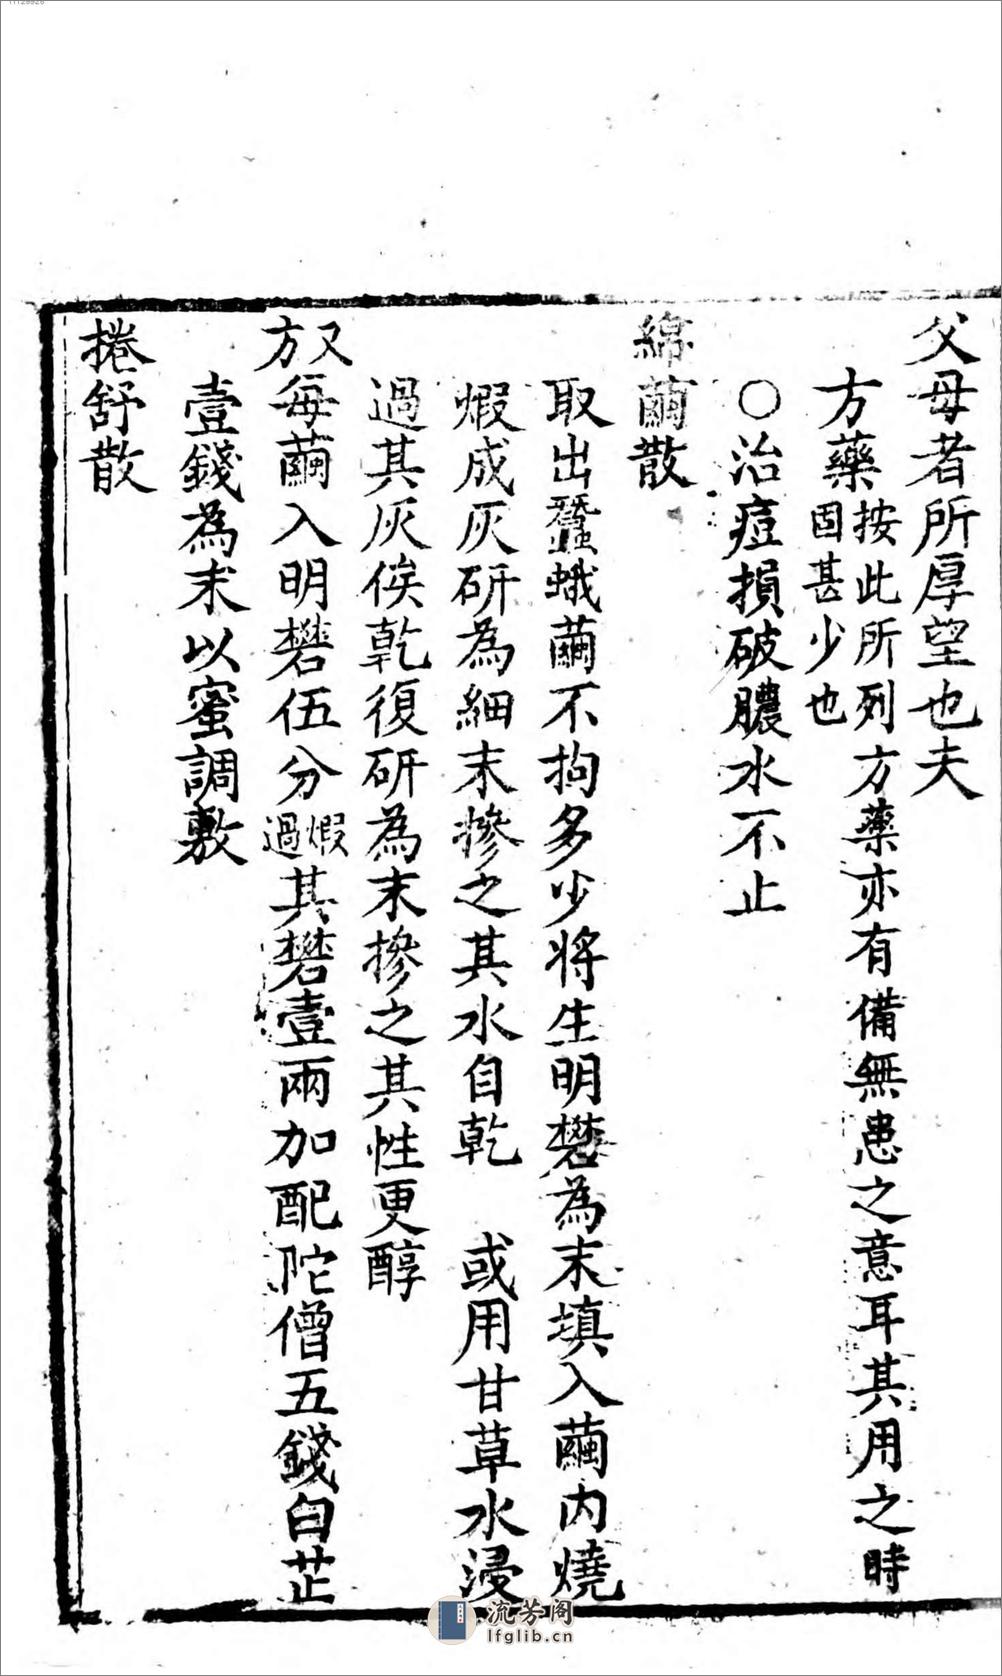 父母者所厚望也夫
方藥按此所列方藥亦有備無患之意耳其用之時
固甚少也
○治痘損破膿水不止
綿繭散
取出蠶蛾繭不拘多少將生明礬為末填入繭內燒
煆成灰研為細末摻之其水自乾　或用甘草水浸
過其灰俟乾復研為末摻之其性更醇
又方每繭入明礬伍分煆過其礬壹兩加配陀僧五錢白芷
壹錢為末以蜜調敷
捲舒散
流芳阁
lfglib.cn